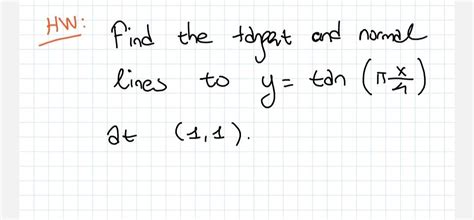 HW: Find the tangent and normal
lines to y = tan (π x/4)
at (1,1).